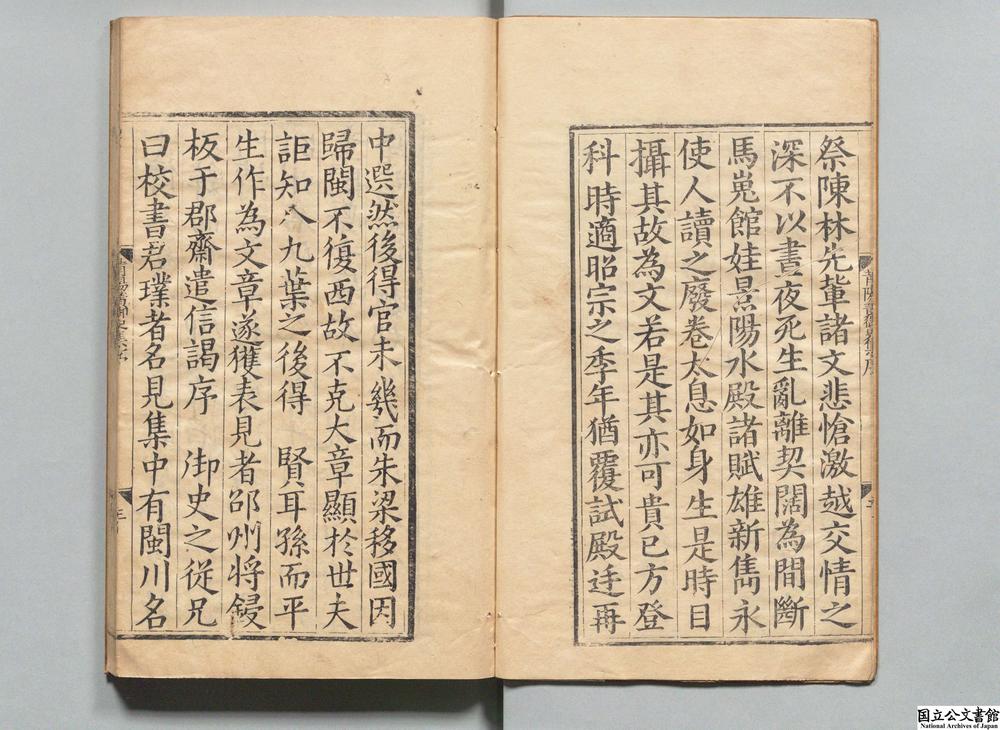 祭陳林先軰諸文悲愴激越交情之
深不以晝夜死生亂離契闊為間斷
馬嵬館娃景陽水殿諸賦雄新雋永
使人讀之廢卷太息如身生是時目
攝其故為文若是其亦可貴已方登
科時適昭宗之季年猶覆試殿廷再
中選然後得官未幾而朱梁移國因
歸閩不復西故不克大章顯於世夫
詎知八九葉之後得 賢耳孫而平
生作為文章遂獲表見者邵州將鋟
板于郡齋遣信謁序 御史之從兄
曰校書君璞者名見集中有閩川名
国立公文書館
National Archives of Japan